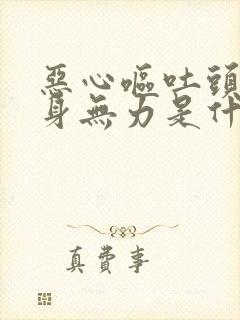 惡心嘔吐頭
身無力是什
真費事